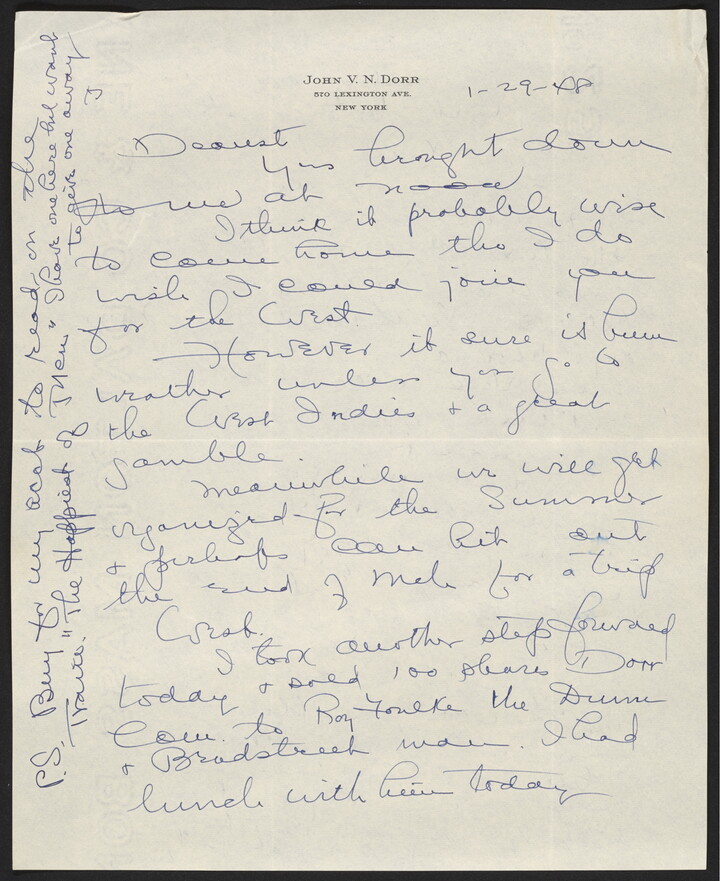 JOHN V. N. DORR
570 LEXINGTON AVE.
NEW YORK
1-29-48
Dearest
Yrs brought down
to me at noon
I think it probably wise
to come home tho I do
wish I could join you
for the West.
However it sure is bum
weather unless you go to
the West Indies & a great
gamble.
Meanwhile we will get
organized for the Summer
& perhaps can hit out
the end of Mch for a trip
West.
I took another step forward
today & sold 100 shares Dorr
Com. to Roy Foulke the Dunn
& Bradstreet man. I had
lunch with him today
P.S. Buy for my acct to read on the
Train. "The Happiest of Them" I have one here but want
to give one away
J